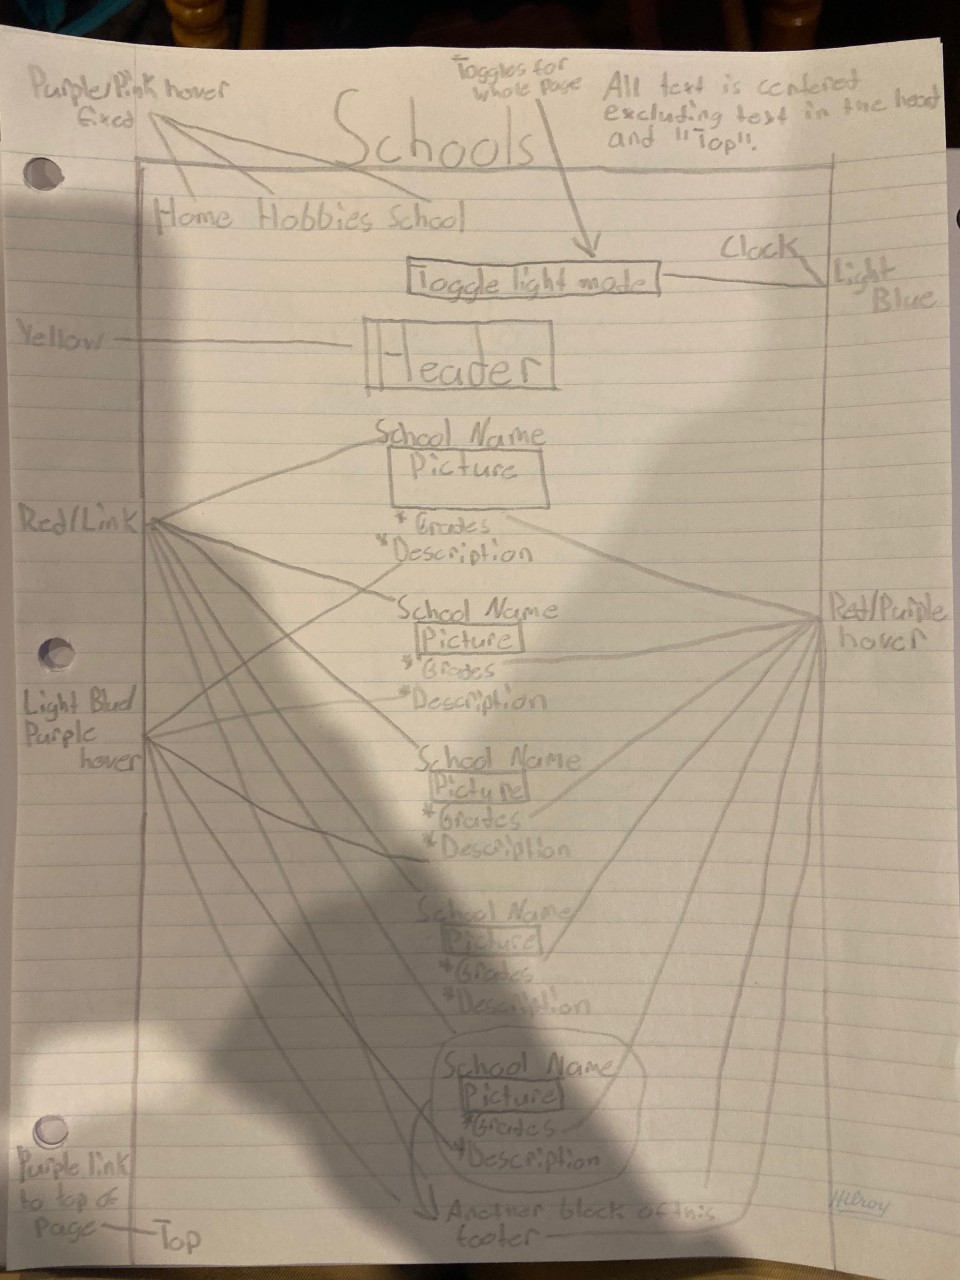 Purple/Pink hover
fixed
Toggles for
whole page
All text is centered
excluding text in the head
and "Top".
Schools
Home Hobbies School
Toggle light mode
Clock
Light
Blue
Yellow
Header
School Name
Picture
* Grades
* Description
Red/Link
School Name
Picture
* Grades
* Description
Red/Purple
hover
Light Blue/
Purple
hover
School Name
Picture
* Grades
* Description
School Name
Picture
* Grades
* Description
School Name
Picture
* Grades
* Description
Another block of this
footer
Purple link
to top of
page
Top
Hilroy